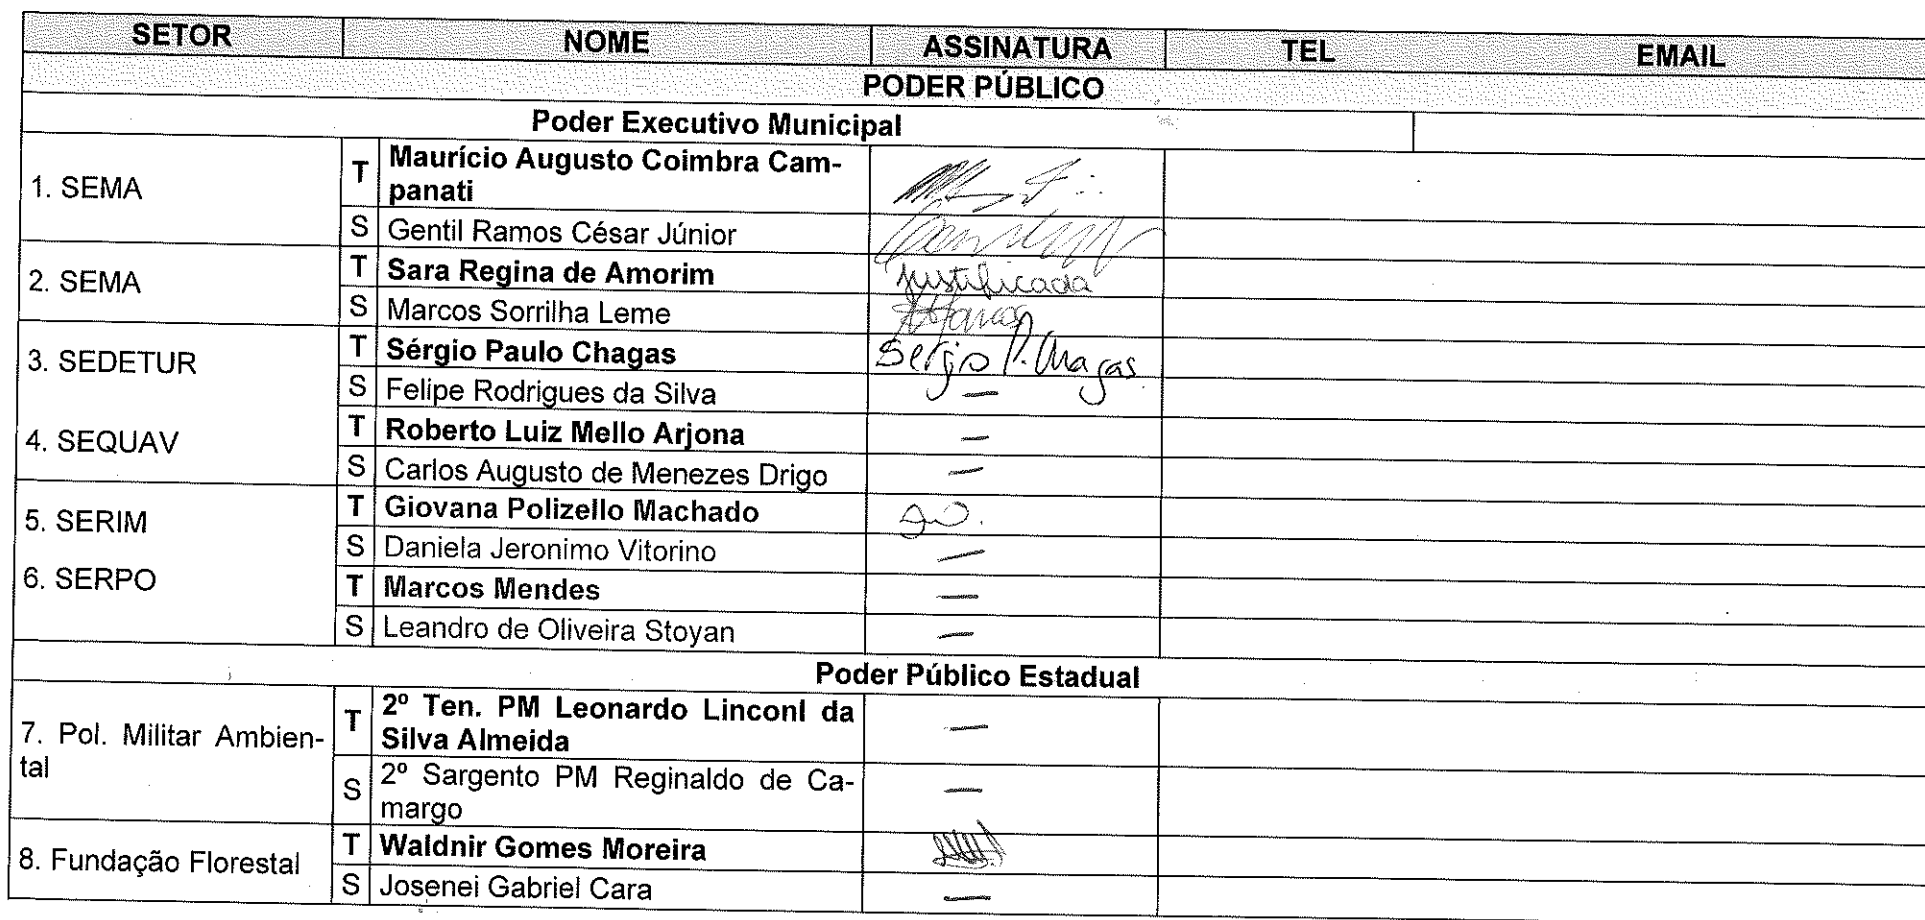 SETOR NOME ASSINATURA TEL EMAIL
PODER PÚBLICO
Poder Executivo Municipal
1. SEMA
T Maurício Augusto Coimbra Cam-
panati
S Gentil Ramos César Júnior
2. SEMA
T Sara Regina de Amorim Justificada
S Marcos Sorrilha Leme
3. SEDETUR
T Sérgio Paulo Chagas Sergio P. Chagas.
S Felipe Rodrigues da Silva —
4. SEQUAV
T Roberto Luiz Mello Arjona —
S Carlos Augusto de Menezes Drigo —
5. SERIM
T Giovana Polizello Machado
S Daniela Jeronimo Vitorino —
6. SERPO
T Marcos Mendes —
S Leandro de Oliveira Stoyan —
Poder Público Estadual
7. Pol. Militar Ambien-
tal
T 2º Ten. PM Leonardo Linconl da
Silva Almeida —
S 2º Sargento PM Reginaldo de Ca-
margo —
8. Fundação Florestal
T Waldnir Gomes Moreira
S Josenei Gabriel Cara —